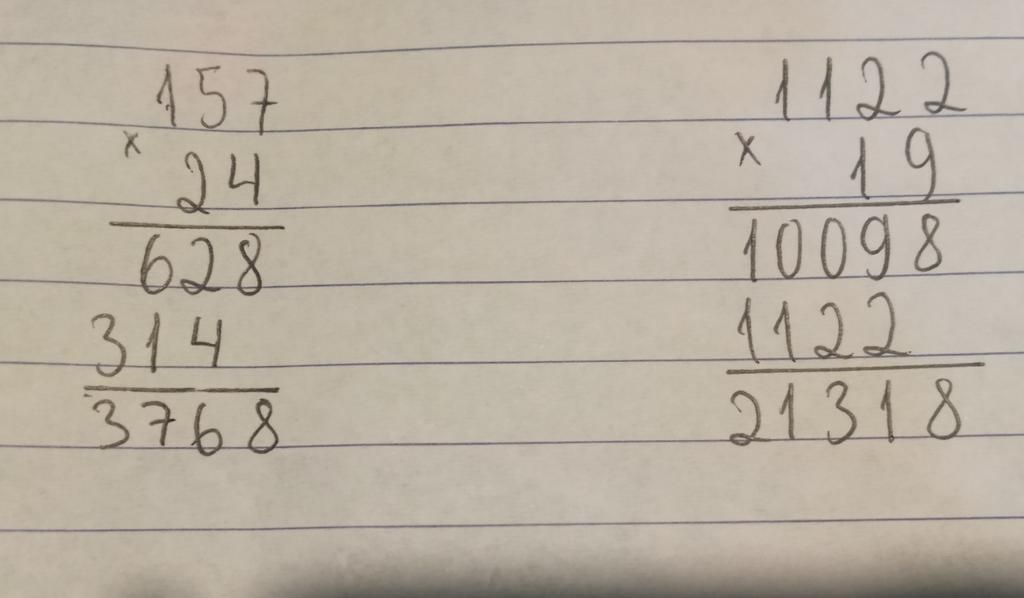 157
× 24
628
314
3768
1122
× 19
10098
1122
21318